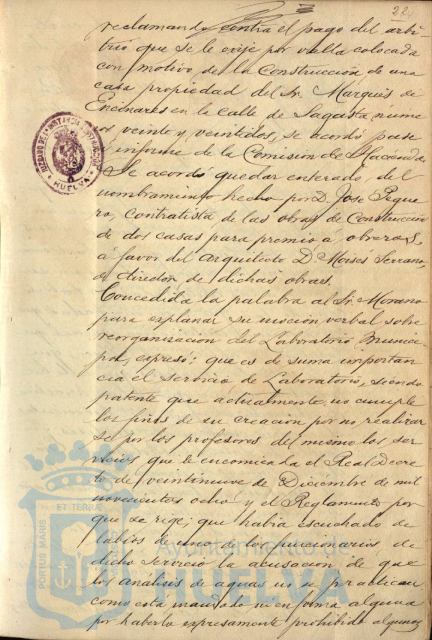 22
reclamando contra el pago del arbi-
trio que se le exije por valla colocada
con motivo de la Construcción de una
casa propiedad del Sr. Marqués de
Encinares en la calle de Sagasta nume-
ros veinte y veintidos, se acordó pase
a informe de la Comision de Hacienda.
Se acordó quedar enterado del
nombramiento hecho por D. Jose Pegue-
ro, contratista de las obras de Construcción
de dos casas para premio á obreros,
á favor del Arquitecto D. Moises Serrano,
director de dichas obras.
Concedida la palabra al Sr. Morano
para explanar su moción verbal sobre
reorganización del Laboratorio Munici-
pal, expresó: que es de suma importan-
cia el servicio de Laboratorio, siendo
patente que actualmente no cumple
los fines de su creacion por no realizar-
se por los profesores del mismo los ser-
vicios que le encomienda el Real Decre-
to de veintinueve de Diciembre de mil
novecientos ocho y el Reglamento por
que se rige; que habia escuchado de
labios de uno de los funcionarios de
dicho servicio la acusacion de que
los analisis de aguas no se practican
como está mandado ni en forma alguna
por haberlo expresamente prohibido algunos
HUELVA
PORTUS MARIS ET TERRAE
Ayuntamiento de
HUELVA